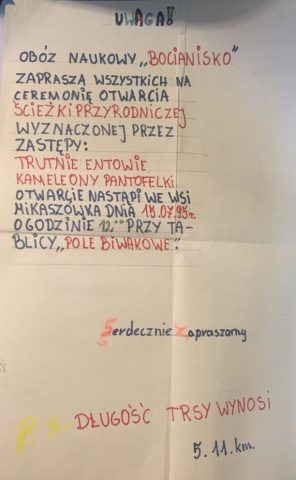 UWAGA!
OBÓZ NAUKOWY „BOCIANISKO"
ZAPRASZA WSZYSTKICH NA
CEREMONIĘ OTWARCIA
ŚCIEŻKI PRZYRODNICZEJ
WYZNACZONEJ PRZEZ
ZASTĘPY:
TRUTNIE ENTOWIE
KAMELEONY PANTOFELKI
OTWARCIE NASTĄPI WE WSI
MIKASZÓWKA DNIA 15.07.95r.
O GODZINIE 12.00 PRZY TA-
BLICY „POLE BIWAKOWE".
Serdecznie Zapraszamy
DŁUGOŚĆ TRSY WYNOSI
5.11.km.